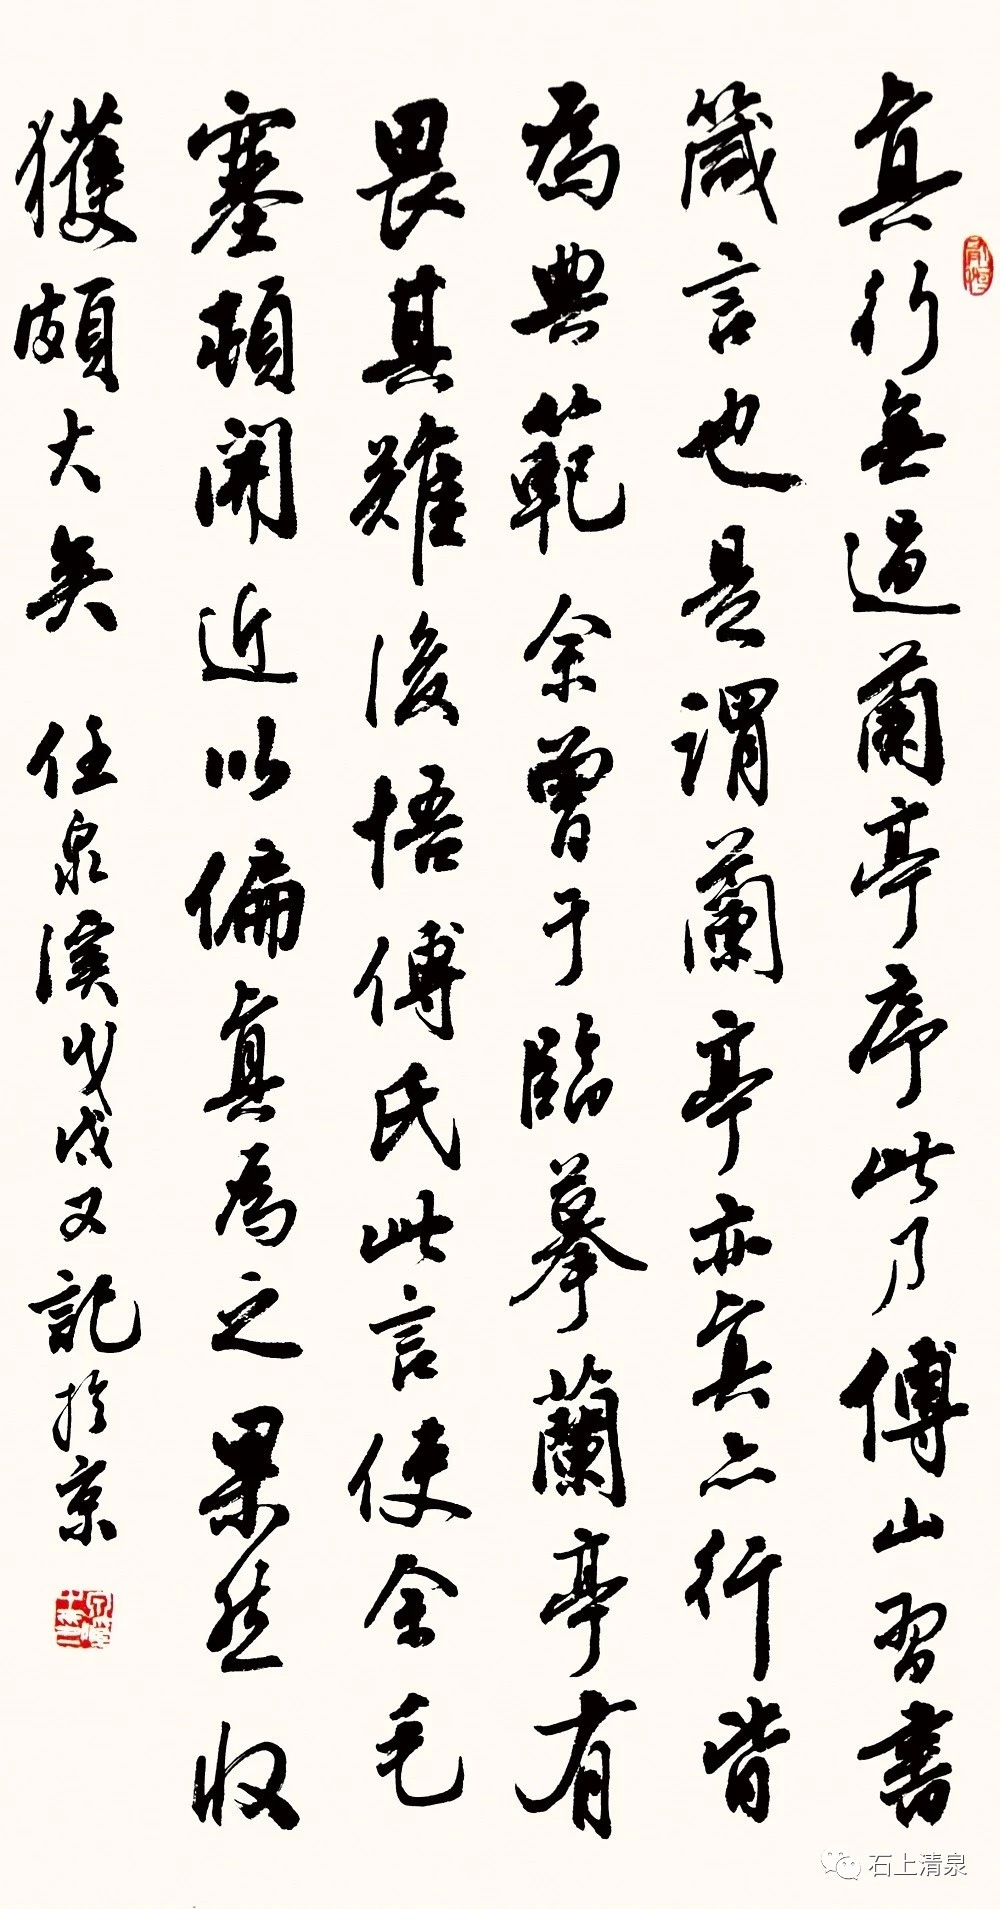 真行無過蘭亭序此乃傅山習書
箴言也是謂蘭亭亦真亦行皆
為典範余曾于臨摹蘭亭有
畏其難後悟傅氏此言使余毛
塞頓開近以偏真為之果然收
獲頗大矣 任泉溪戊戌又記於京
石上清泉